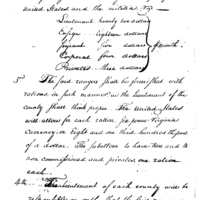 United States and the militia Viz.
Lieutenant twenty two dollars
Ensign eighteen dollars
Serjeant five dollars
Corporal four dollars
Privates three dollars
month
3d The said rangers shall be furnished with
rations in such manner as the lieutenant of the
county shall think proper. The United States
will allow for each ration six pence Virginia
currency, or eight and one third hundredth parts
of a dollar. The subaltern to have two and the
non commissioned and privates, one ration
each.
4th The lieutenant of each county will be